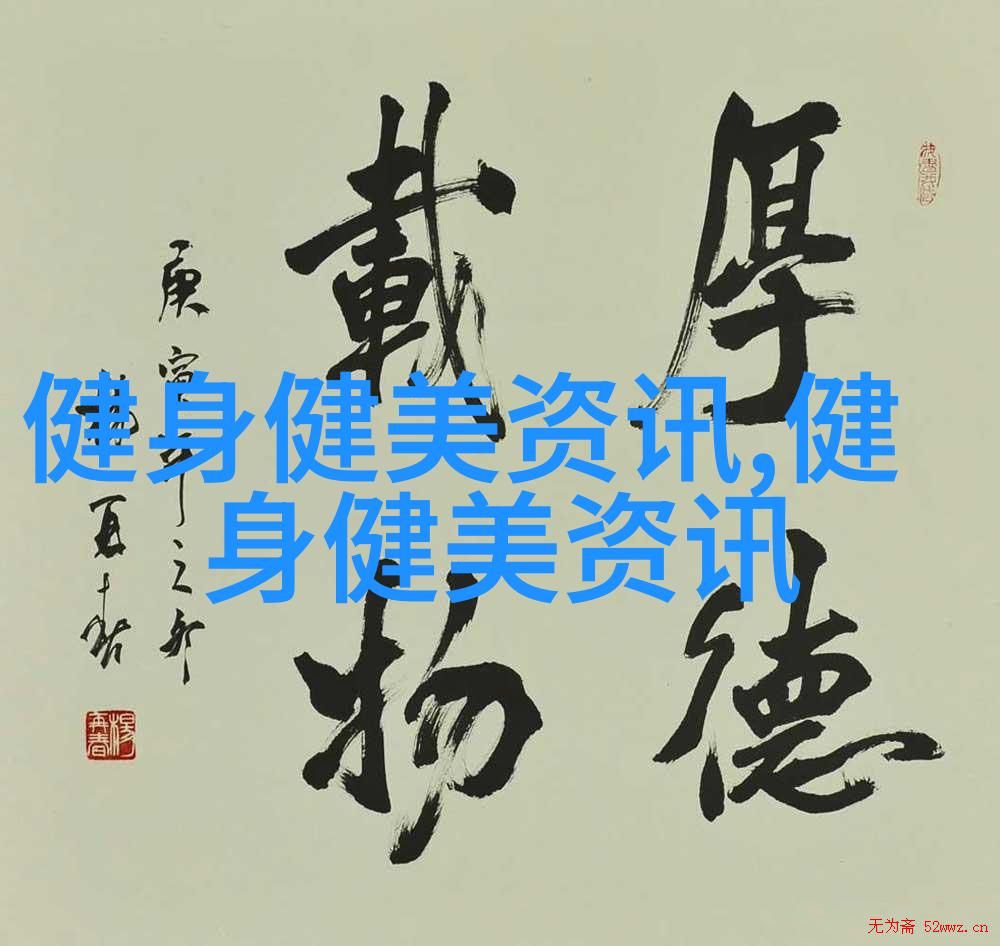 厚德
載物
庚寅年之卯
健身健美资讯,健
身健美资讯
楊再春
无为斋 52wwz.cn